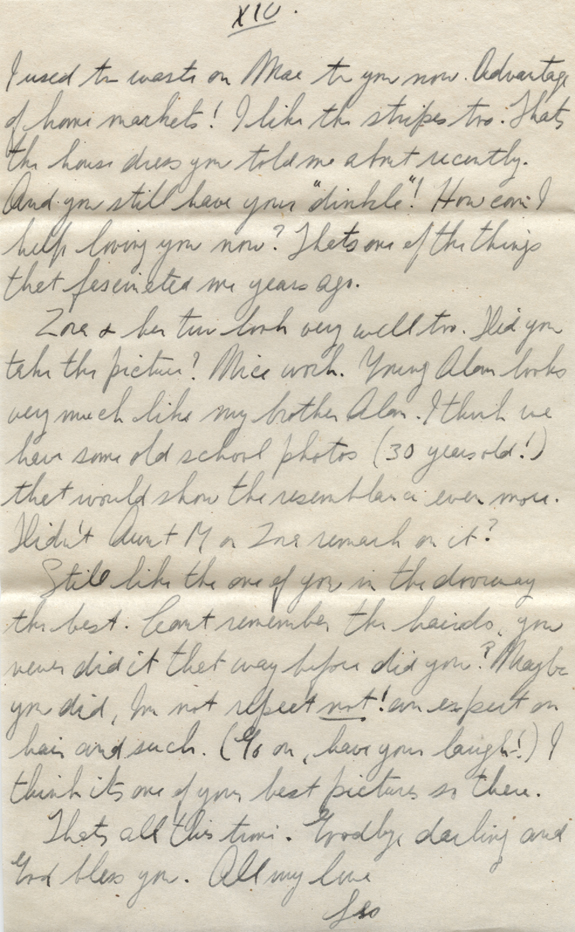 XIV.
I used to waste on Mae to you now. Advantage
of home markets! I like the stripes too. Thats
the house dress you told me about recently.
And you still have your "dinkle"! How can I
help loving you now? Thats one of the things
that fascinated me years ago.
Zora & her two look very well too. Did you
take the picture? Nice work. Young Alan looks
very much like my brother Alan. I think we
have some old school photos (30 years old!)
that would show the resemblance even more.
Didn't Aunt M or Zora remark on it?
Still like the one of you in the doorway
the best. Cant remember the hairdo, you
never did it that way before did you? Maybe
you did, Im not repeat not! an expert on
hair and such. (Go on, have your laugh!) I
think its one of your best pictures so there.
Thats all this time. Goodbye darling and
God bless you. All my love
Leo